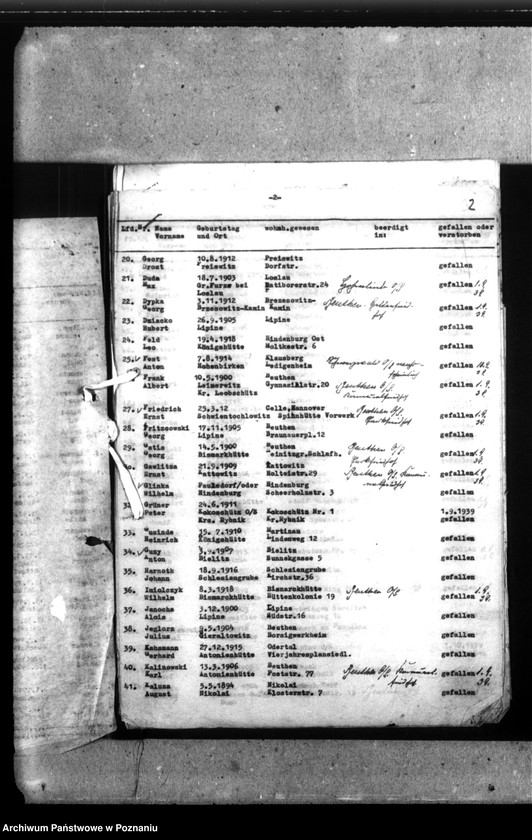 -2-
2
Lfd. Nr. Name Geburtstag wohnh.gewesen beerdigt gefallen oder
Vorname und Ort in: verstorben
20. Georg 10.8.1912 Preiswitz
Drost Preiswitz Dorfstr. gefallen
21. Duda 18.7.1903 Loslau
Max Gr. bei Ratiborerstr.24 gefallen 1.9.
Loslau 39.
22. Dypka 3.11.1912 Brzezowitz- Beuthen
Georg Brzezowitz-Kamin Kamin gefallen 1.9.
39.
23. 26.9.1905 Lipine
Hubert Lipine gefallen
24. Feld 19.4.1918 Hindenburg Ost
Leo Königshütte Moltkestr. 6 gefallen
25. Fest 7.8.1914 Klausberg
Anton Hohenbirken Ludigenheim gefallen
39.
Frank 10.5.1900 Beuthen Beuthen O/S
Albert Leimerwitz Gymnasialstr.20 gefallen 1.9.
Kr. Leobschütz 39.
27. Friedrich 25.3.12 Celle, Hannover Beuthen O/S.
Ernst Schwientochlowitz Spinnhütte Vorwerk gefallen 1.9.
39.
28. Fritzsowski 17.11.1905 Beuthen
Georg Lipine Braunauerpl.12 gefallen
29. 14.5.1900 Beuthen Beuthen O/S.
Georg Bismarkhütte gefallen 1.9.
39.
30. Gawlitza 21.9.1909 Kattowitz Beuthen O/S.
Ernst Kattowitz Holteistr.29 gefallen 1.9.
39.
Glinka Paulsdorf/oder Hindenburg
Wilhelm Hindenburg Scheerholzstr. 3 gefallen
32. Grüner 24.6.1911
Peter Kokoschütz O/S Kokoschütz Nr. 1 1.9.1939
Krs. Rybnik Kr.Rybnik gefallen
33. 25.7.1910
Heinrich Königshütte Lindenweg 12 gefallen
34. Guzy 3.9.1907 Bielitz
Anton Bielitz Sunnekgasse 5 gefallen
35. Harnoth 18.9.1916 Schlesiengrube
Johann Schlesiengrube Kirchstr.36 gefallen
36. Imiolczyk 8.3.1918 Bismarkhütte Beuthen O/S
Wilhelm Bismarkhütte Hüttenkolonie 19 gefallen 1.9.
39.
37. Janocha 3.12.1900 Lipine
Alois Lipine Südstr.16 gefallen
38. Jeglorz 9.5.1904 Beuthen
Julius Gieraltowitz Borsigwerkheim gefallen
39. Kahsmann 27.12.1915 Odertal
Gerhard Antonienhütte Vierjahresplansiedl. gefallen
40. Kalinowski 13.3.1906 Beuthen Beuthen O/S
Karl Antonienhütte Poststr. 77 gefallen 1.9.
39.
41. Kaluza 5.5.1894 Nikolai
August Nikolai Klosterstr. 7 gefallen
Archiwum Państwowe w Poznaniu